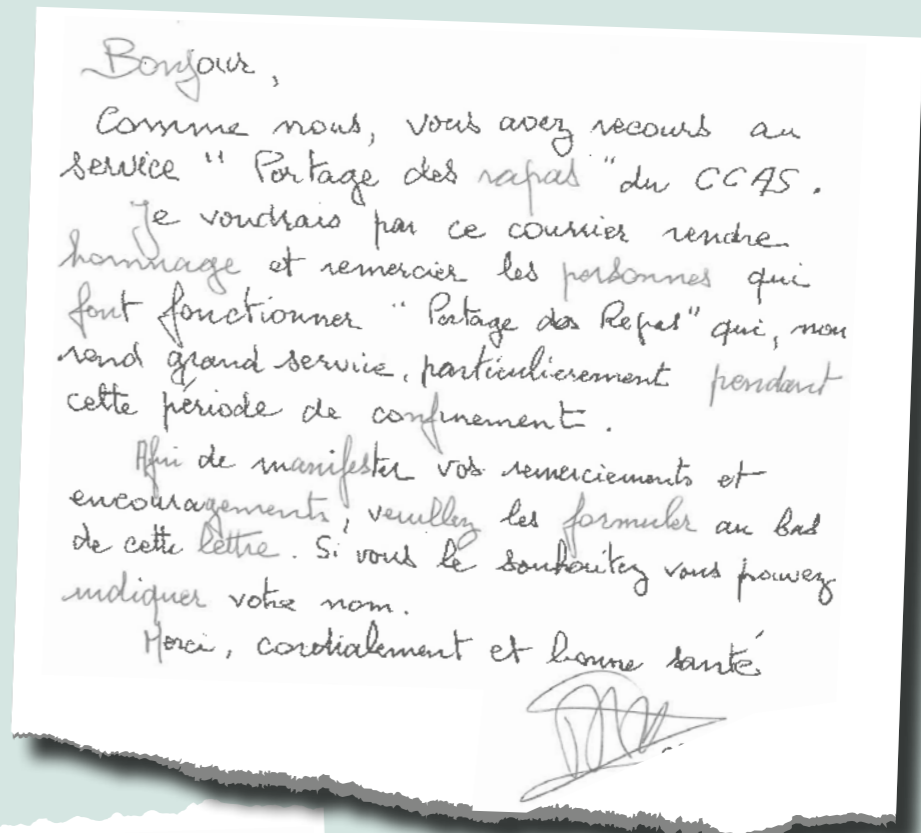 Bonjour,
Comme nous, vous avez recours au
service " Portage des rapas " du CCAS.
Je voudrais par ce courrier rendre
hommage et remercier les personnes qui
font fonctionner " Portage des Repas" qui, nou
rend grand service, particulièrement pendant
cette période de confinement.
Afin de manifester vos remerciements et
encouragements, veuillez les formuler au bas
de cette lettre. Si vous le souhaitez vous pouvez
indiquer votre nom.
Merci, cordialement et bonne santé